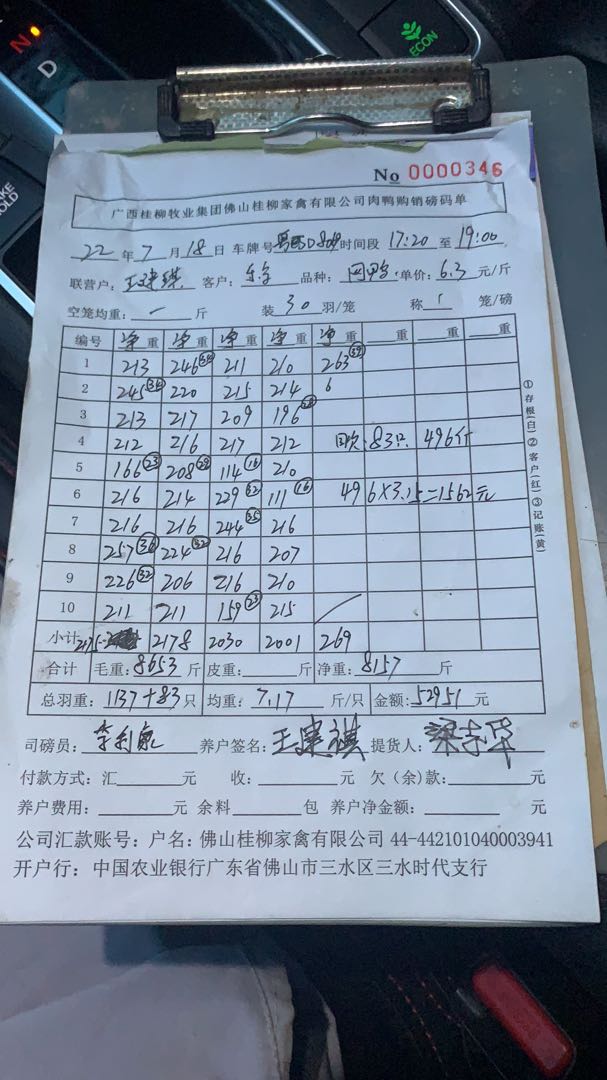 N
D
ECON
HOLD
No 0000346
广西桂柳牧业集团佛山桂柳家禽有限公司肉鸭购销磅码单
22 年 7 月 18 日 车牌号 时间段 17:20 至 19:00
联营户: 王建祺 客户: 品种: 单价: 6.3 元/斤
空笼均重: 一 斤 装 30 羽/笼 称 1 笼/磅
编号 净重 净重 净重 净重 净重 重 重 重
1 213 246(34) 211 210 263(39)
2 245(34) 220 215 214 6
3 213 217 209 196(28)
4 212 216 217 212 83只 496斤
5 166(23) 208(29) 114(16) 210
6 216 214 229(32) 111(16) 496×3.15=1562元
7 216 216 244(35) 216
8 257(36) 224(32) 216 207
9 226(32) 206 216 210
10 211 211 159(23) 215
小计 2175 2178 2030 2001 269
合计 毛重: 8653 斤 皮重: 斤 净重: 8157 斤
总羽重: 1137+83 只 均重: 7.17 斤/只 金额: 52951 元
司磅员: 养户签名: 王建祺 提货人:
付款方式: 汇 元 收: 元 欠(余)款: 元
养户费用: 元 余料 包 养户净金额: 元
公司汇款账号: 户名: 佛山桂柳家禽有限公司 44-442101040003941
开户行: 中国农业银行广东省佛山市三水区三水时代支行
①存根(白)②客户(红)③记账(黄)